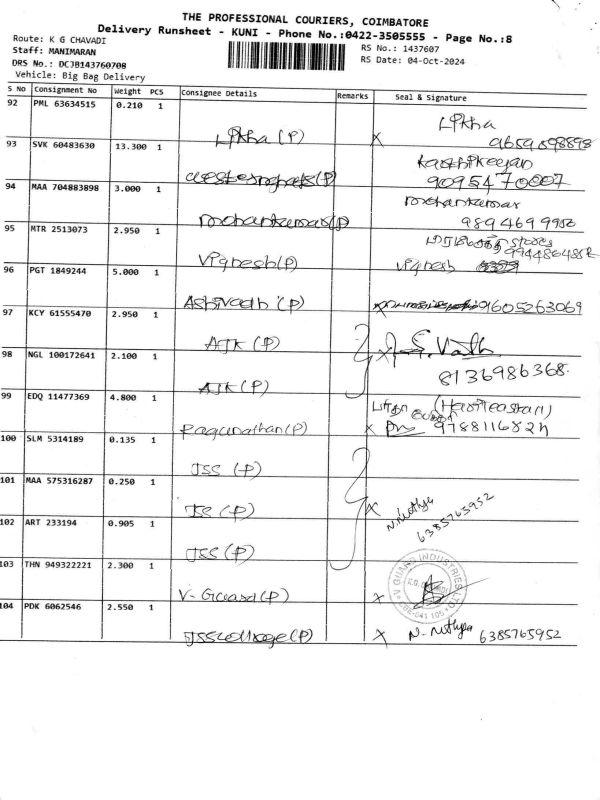 THE PROFESSIONAL COURIERS, COIMBATORE
Delivery Runsheet - KUNI - Phone No.:0422-3505555 - Page No.:8
Route: K G CHAVADI
RS No.: 1437607
Staff: MANIMARAN
RS Date: 04-Oct-2024
DRS No.: DCJB143760708
Vehicle: Big Bag Delivery
S No Consignment No Weight PCS Consignee Details Remarks Seal & Signature
92 PML 63634515 0.210 1 Lipkha (P) X Lipkha
93 SVK 60483630 13.300 1 westernghats(P) Karthikeyan 9095470007
94 MAA 704883898 3.000 1 mohankumar(P) mohankumar
9894699950
95 MTR 2513073 2.950 1 Vignesh(P) stores
96 PGT 1849244 5.000 1 Ashivadh (P) Vignesh
9605263069
97 KCY 61555470 2.950 1 AJK (P)
98 NGL 100172641 2.100 1 AJK(P) X 8136986368
99 EDQ 11477369 4.800 1 Ragunathan(P) X
100 SLM 5314189 0.135 1 JSS (P)
101 MAA 575316287 0.250 1 JSS (P) X N. Nithya
6385765952
102 ART 233194 0.905 1 JSS (P)
103 THN 949322221 2.300 1 V-Guard(P) X V GUARD INDUSTRIES LTD
104 PDK 6062546 2.550 1 JSS college(P) X N. Nithya 6385765952